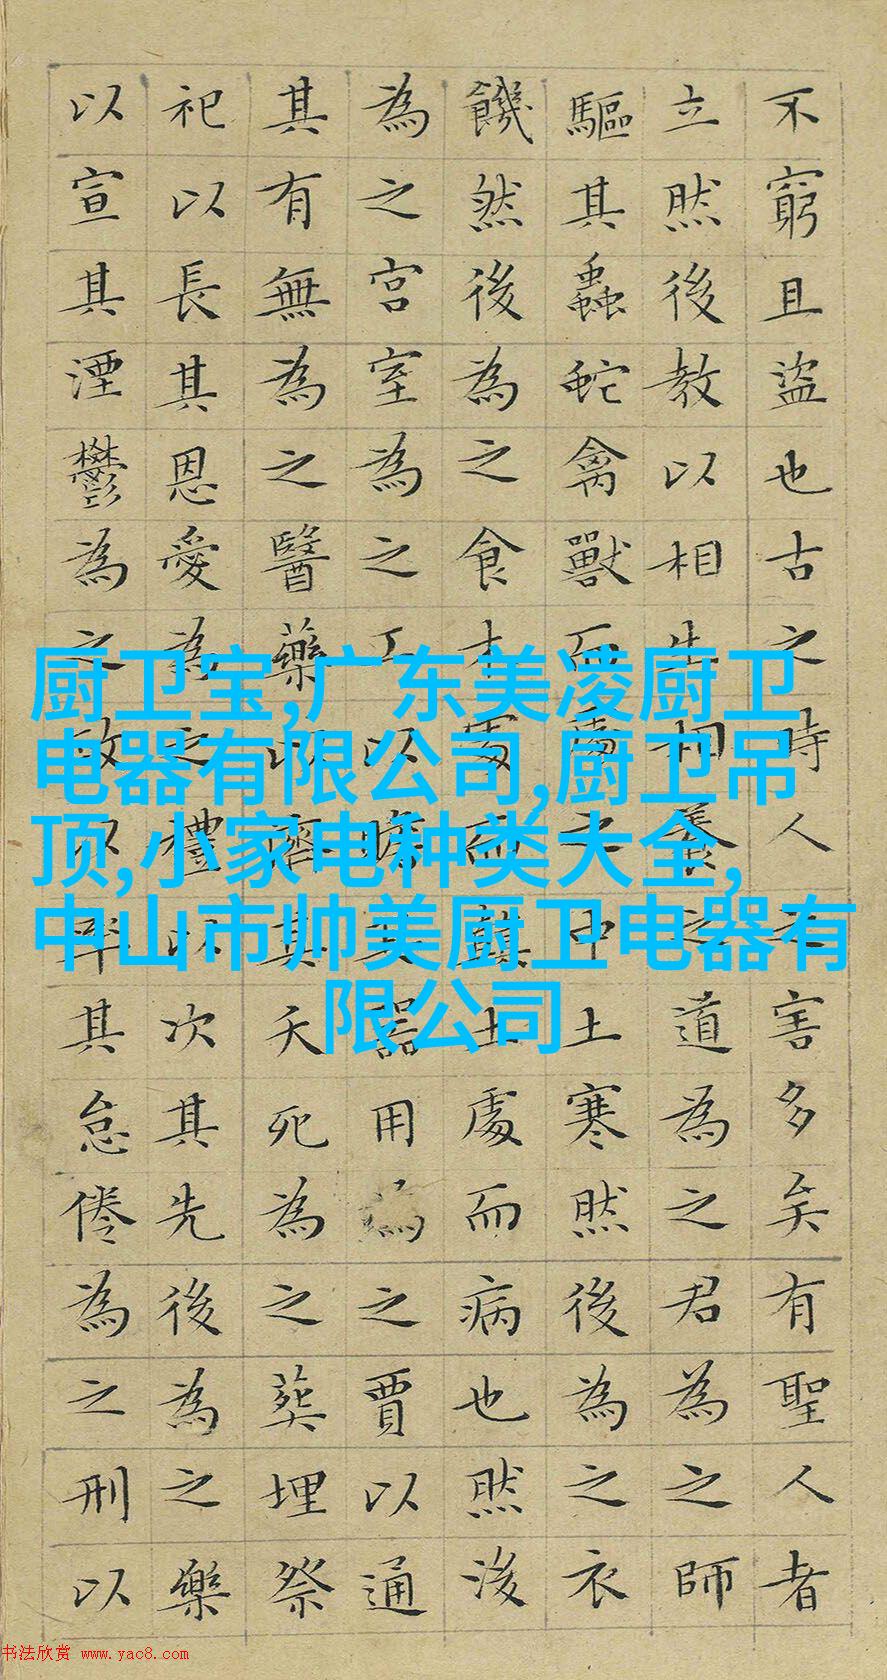 不窮且盜也古之時人之害多矣有聖人者
立然後教以相生相養之道為之君為之師
驅其蟲蛇禽獸而處之中土寒然後為之衣
饑然後為之食木處而顛土處而病也然後
為之宮室為之工以贍其器用為之賈以通
其有無為之醫藥以濟其夭死為之葬埋祭
祀以長其恩愛為之禮以次其先後為之樂
以宣其湮鬱為之政以率其怠倦為之刑以
厨卫宝,广东美凌厨卫
电器有限公司,厨卫吊
顶,小家电种类大全,
中山市帅美厨卫电器有
限公司
书法欣赏 www.yac8.com